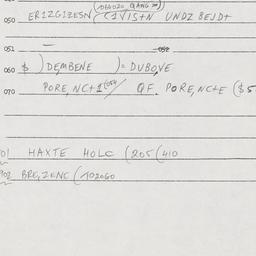 050 ERIZGIZESN (1VIS+N UNDZ BEJD+
051 052
060 $ ) DEMBENE )= DUBOVE
070 PORE,NC+1 / QF. PORE,NC+E ($5
01 HAXTE HOLC (205 (410
902 BRE,ZENC (702060